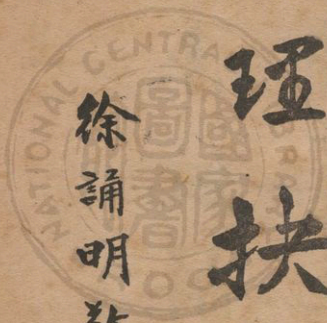 理抉
徐誦明
NATIONAL CENTRAL LIBRARY
國家圖書